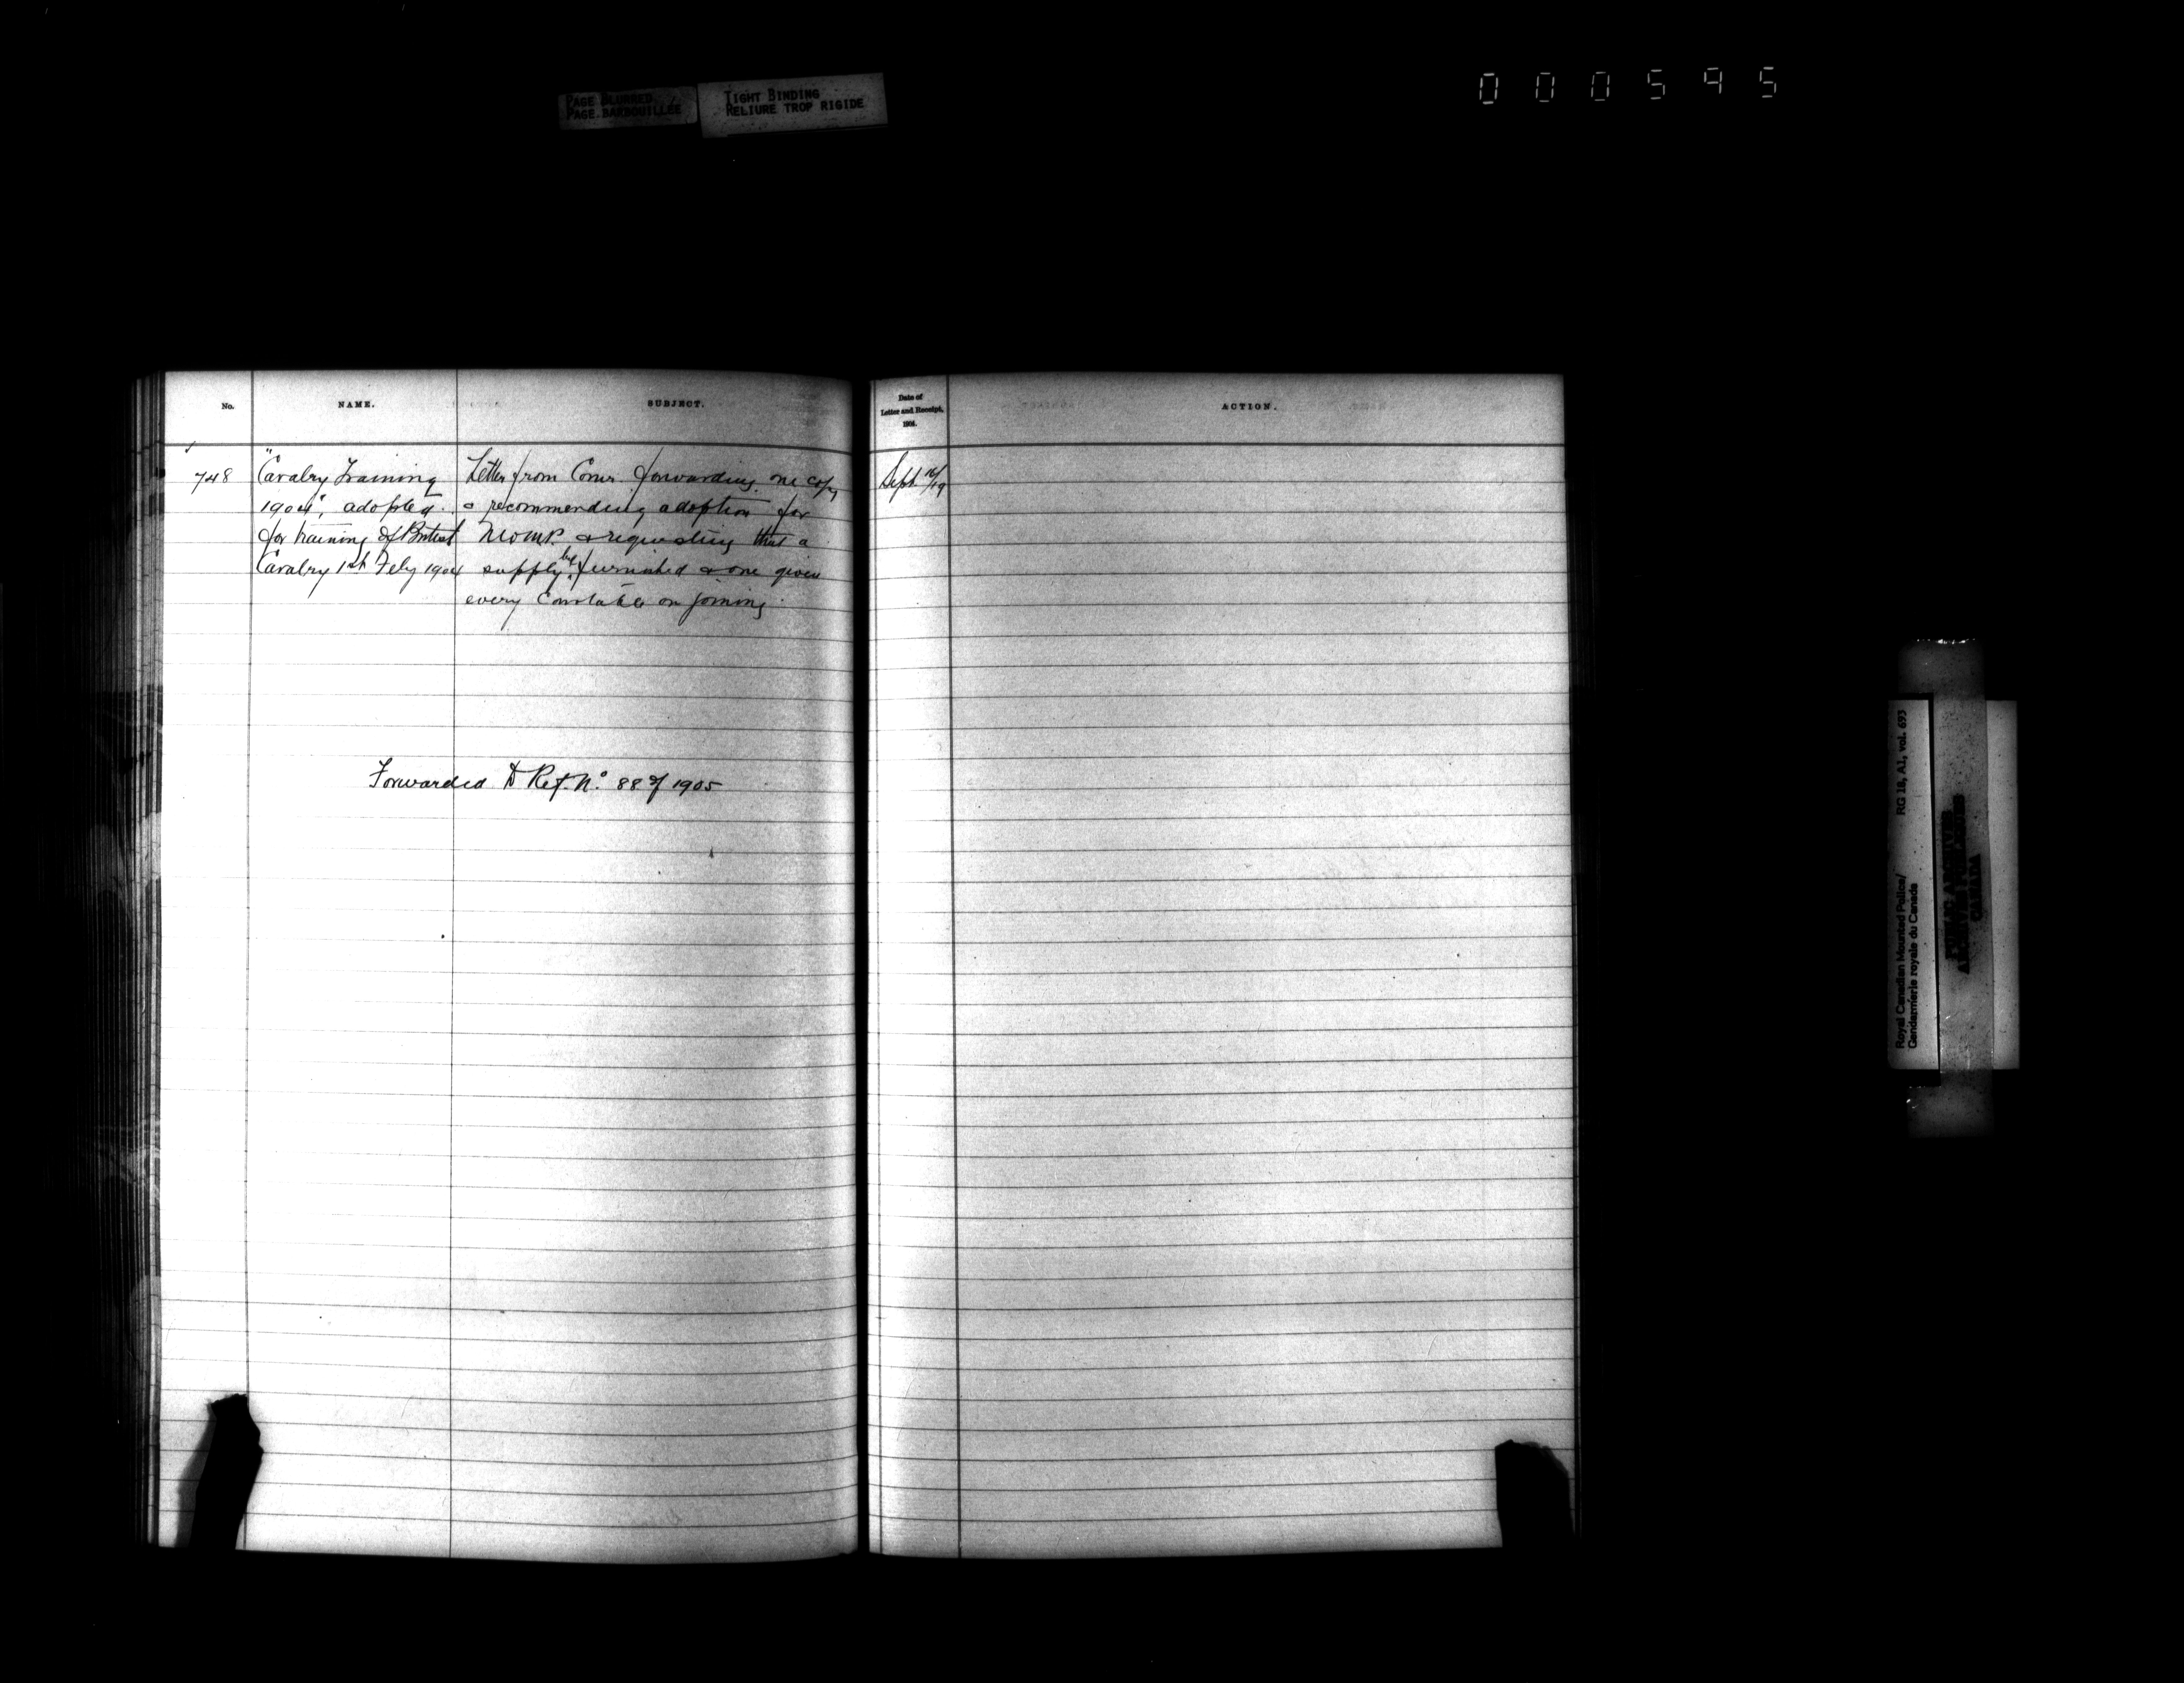 PAGE BLURRED
PAGE BARBOUILLÉE
TIGHT BINDING
RELIURE TROP RIGIDE
000595
No.
NAME.
SUBJECT.
Date of
Letter and Receipt,
1904.
ACTION.
748
"Cavalry Training
1904", adopted
for training of British
Cavalry 1st Feby 1904
Letter from Comr. forwarding one copy
& recommending adoption for
NWMP. & requesting that a
supply be furnished & one given
every Constable on joining.
Sept 16/19
Forwarded to Ref. No. 88 of 1905
Royal Canadian Mounted Police/ RG 18, A1, vol. 693
Gendarmerie royale du Canada
PUBLIC ARCHIVES
ARCHIVES PUBLIQUES
CANADA